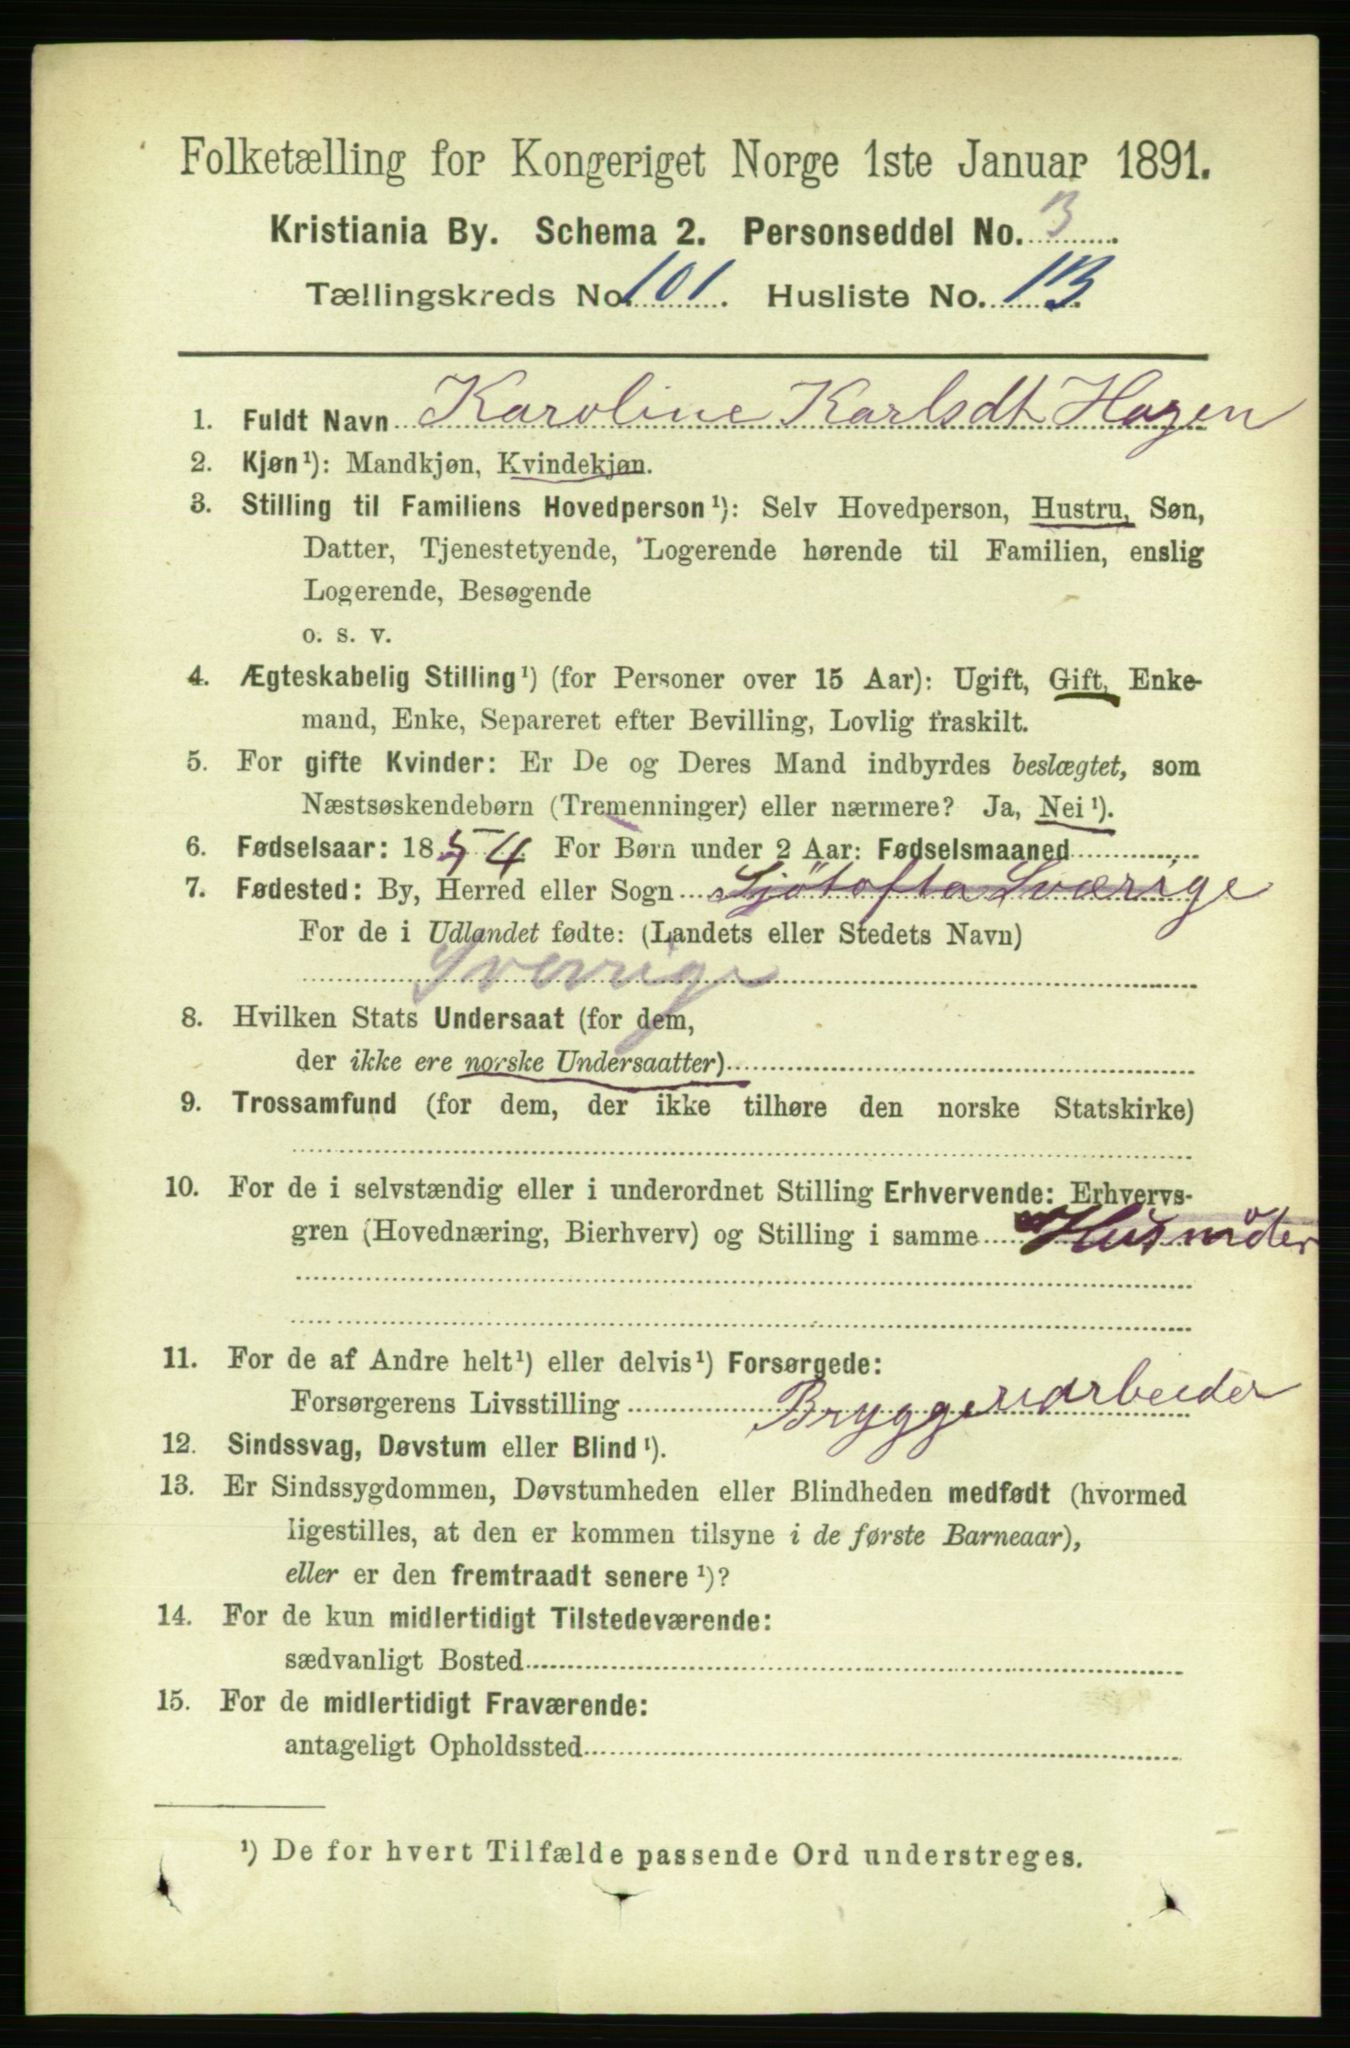 Folketælling for Kongeriget Norge 1ste Januar 1891.
Kristiania By. Schema 2. Personseddel No. 3.
Tællingskreds No. 101. Husliste No. 1B.
1. Fuldt Navn Karoline Karlsdt Hagen
2. Kjøn¹): Mandkjøn, Kvindekjøn.
3. Stilling til Familiens Hovedperson¹): Selv Hovedperson, Hustru, Søn,
Datter, Tjenestetyende, Logerende hørende til Familien, enslig
Logerende, Besøgende
o. s. v.
4. Ægteskabelig Stilling¹) (for Personer over 15 Aar): Ugift, Gift, Enke-
mand, Enke, Separeret efter Bevilling, Lovlig fraskilt.
5. For gifte Kvinder: Er De og Deres Mand indbyrdes beslægtet, som
Næstsøskendebørn (Tremenninger) eller nærmere? Ja, Nei¹).
6. Fødselsaar: 1854. For Børn under 2 Aar: Fødselsmaaned
7. Fødested: By, Herred eller Sogn Sjötofta Sværige
For de i Udlandet fødte: (Landets eller Stedets Navn)
Sverrige
8. Hvilken Stats Undersaat (for dem,
der ikke ere norske Undersaatter)
9. Trossamfund (for dem, der ikke tilhøre den norske Statskirke)
10. For de i selvstændig eller i underordnet Stilling Erhvervende: Erhvervs-
gren (Hovednæring, Bierhverv) og Stilling i samme Husmoder
11. For de af Andre helt¹) eller delvis¹) Forsørgede:
Forsørgerens Livsstilling Bryggeriarbeider
12. Sindssvag, Døvstum eller Blind¹).
13. Er Sindssygdommen, Døvstumheden eller Blindheden medfødt (hvormed
ligestilles, at den er kommen tilsyne i de første Barneaar),
eller er den fremtraadt senere¹)?
14. For de kun midlertidigt Tilstedeværende:
sædvanligt Bosted
15. For de midlertidigt Fraværende:
antageligt Opholdssted
¹) De for hvert Tilfælde passende Ord understreges.